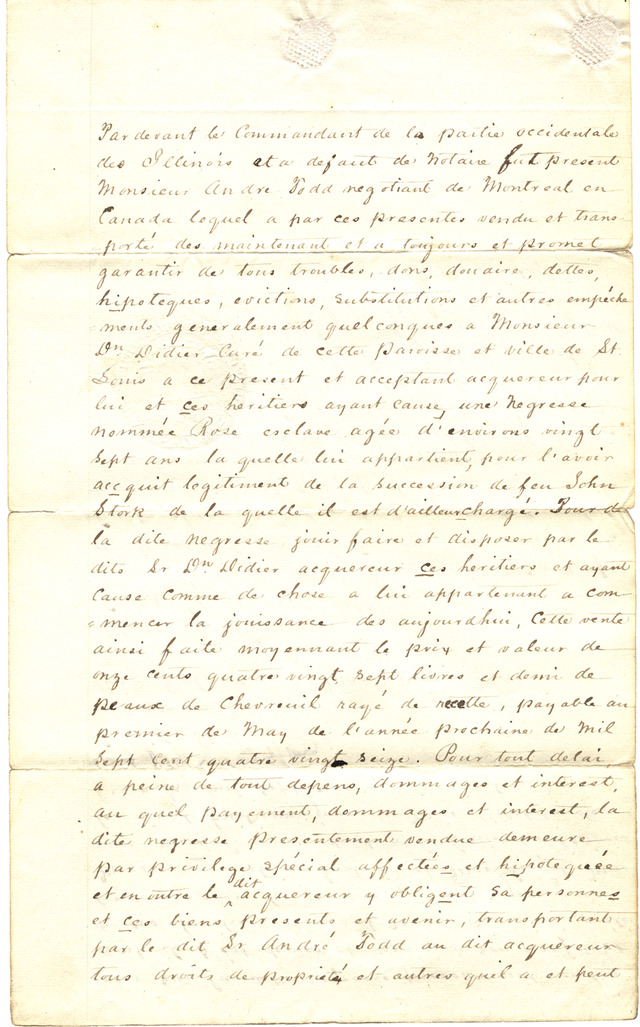 Par devant le Commandant de la partie occidentale
des Illinois et a defaut de Notaire fut present
Monsieur André Todd negotiant de Montreal en
Canada lequel a par ces presentes vendu et trans
porté des maintenant et a toujours et promet
garantir de tous troubles, dons, douaire, dettes,
hipoteques, evictions, substitutions et autres empéche
ments generalement quelconques a Monsieur
Dn Didier Curé de cette paroisse et ville de St.
Louis a ce present et acceptant acquereur pour
lui et ces heritiers ayant cause, une Negresse
nommée Rose esclave agée d'environs vingt
sept ans la quelle lui appartient, pour l'avoir
accquit legitiment de la succession de feu John
Stork de la quelle il est d'ailleurs chargé. Pour de
la dite negresse jouir faire et disposer par le
dits Sr Dn Didier acquereur ces heritiers et ayant
Cause comme de chose a lui appartenant a com
=mencer la jouissance des aujourdhui, Cette vente
ainsi faite moyennant le prix et valeur de
onze cents quatre vingt sept livres et demi de
peaux de Chevreuil rayé de recette, payable au
premier de May de l'année prochaine de Mil
Sept Cent quatre vingt seize. Pour tout delai,
a peine de tout depens, dommages et interest,
au quel payement, dommages et interest, la
dite negresse presentement vendue demeure
par privilege spécial affectées et hipotequée
et en outre le dit acquereur y obligent sa personnes
et ces biens presents et avenir, transportant
par le dit Sr. André Todd au dit acquereur
tous droits de proprieté et autres quil a et peut